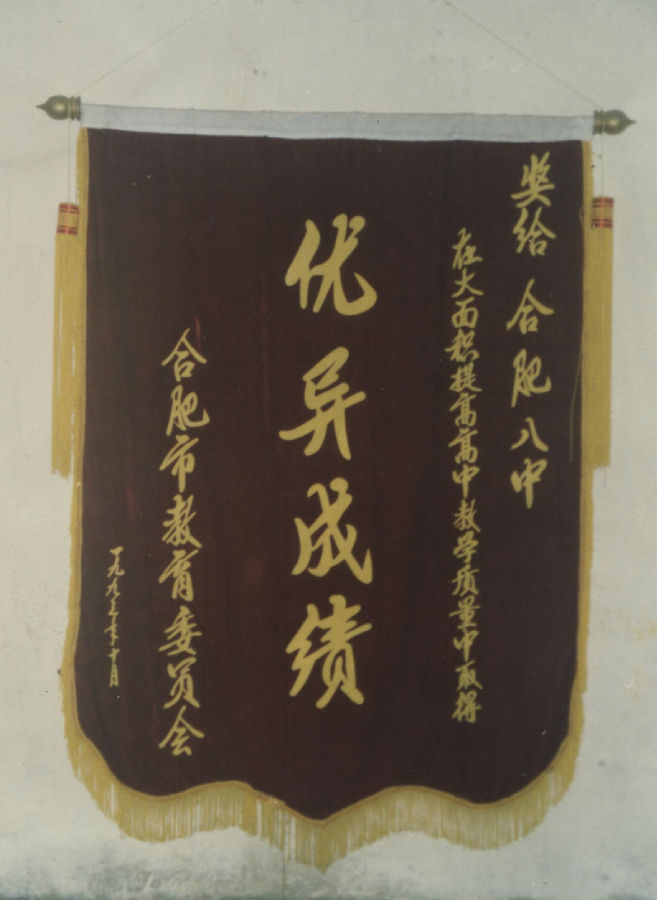 奖给 合肥八中
在大面积提高高中教学质量中取得
优异成绩
合肥市教育委员会
一九九三年十月